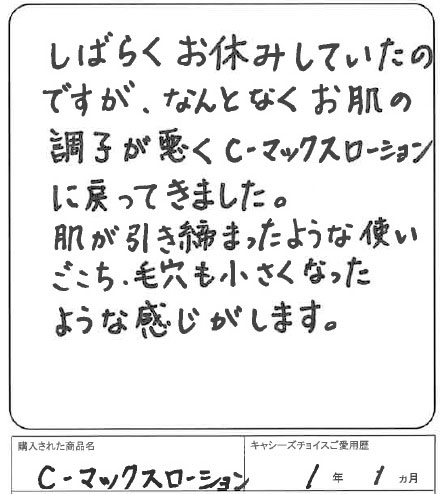 しばらくお休みしていたの
ですが、なんとなくお肌の
調子が悪くC-マックスローション
に戻ってきました。
肌が引き締まったような使い
ごこち、毛穴も小さくなった
ような感じがします。
購入された商品名
C-マックスローション
キャシーズチョイスご愛用歴
1年1ヵ月